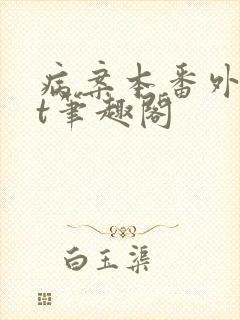 病案本番外
t笔趣阁
白玉渠